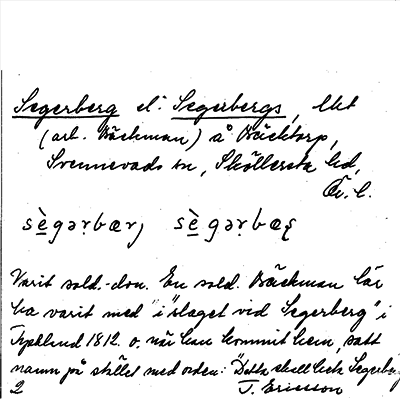 Segerberg el. Segerbergs, lht
(arr. Bäckman) å Bäcktorp,
Svennevads sn, Sköllersta hd,
Ör. l.
sè̱gərbærj sè̱gərbæs
Varit sold.-don. En sold. Bäckman lär
ha varit med "i slaget vid Segerberg" i
1812. o. när han kommit hem, satt
namn på stället med orden: "Detta skall heta Segerbe
2 T. Ericsson